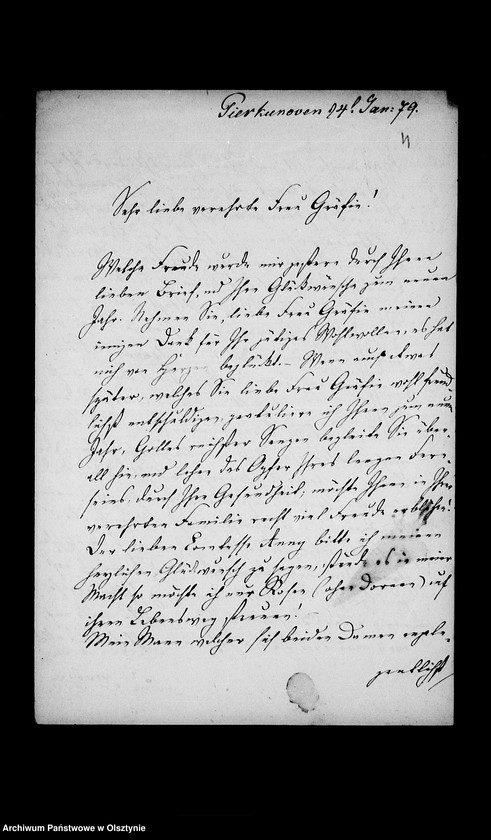 Pierkunoven 24t. Jan: 79.
4
Sehr liebe verehrte Frau Gräfin!
Welche Freude wurde mir gestern durch Ihren
lieben Brief, und Ihre Glükwünsche zum neuen
Jahr. Nehmen Sie, liebe Frau Gräfin meinen
innigen Dank für Ihr gütiges Wohlwollen, es hat
mich von Herzen beglükt. – Wenn auch etwas
später, welches Sie liebe Frau Gräfin wohl freund
lichst entschuldigen, gratulire ich Ihnen zum neuen
Jahr, Gottes reichster Seegen begleite Sie über-
all hin, und lohne das Opfer Ihres langen Fern-
seins, durch Ihre Gesundheit, möchte Ihnen in Ihrer
verehrten Familie recht viel Freude erblühen!
Der lieben Comtesse Anny bitte ich meinen
herzlichen Glükwunsch zu sagen, stünde es in meiner
Macht so möchte ich nur Rosen (ohne Dornen) auf
ihren Lebensweg streuen!
Mein Mann welcher sich beiden Damen